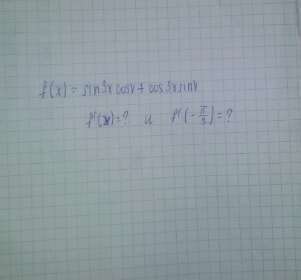 f(x) = sin 3x cos x + cos 3x sin x
f'(x) = ? и f'(-π/3) = ?